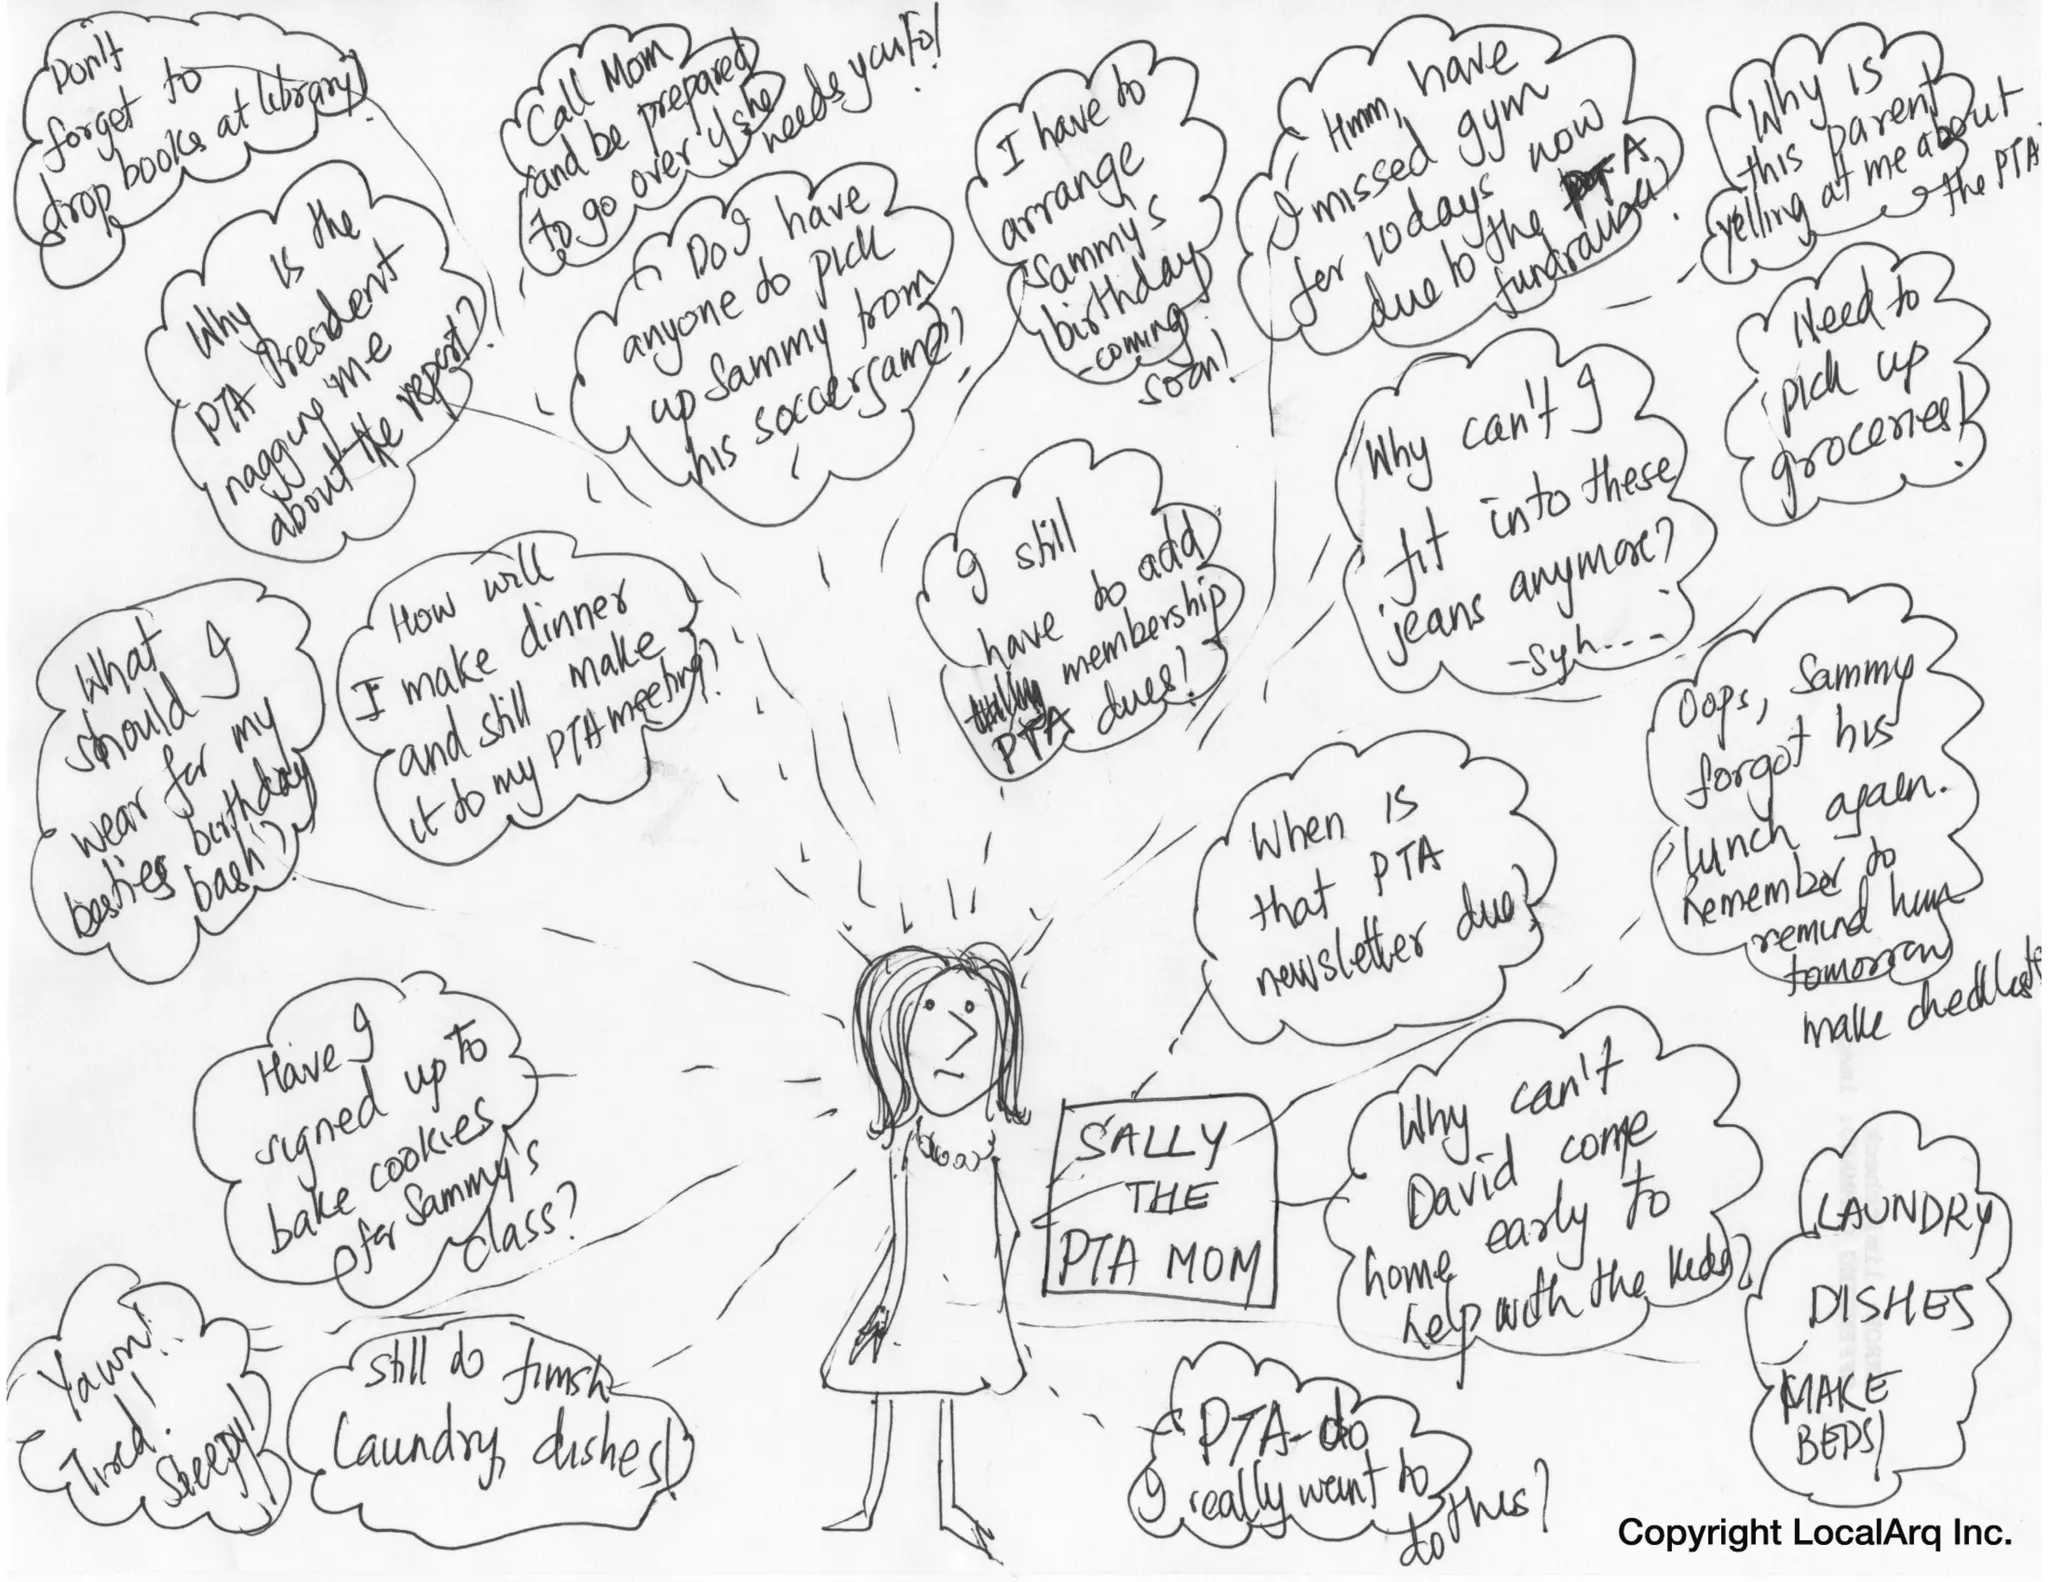 Don't
forget to
drop books at library!
Call Mom
and be prepared
to go over if she
needs you to!
I have to
arrange
Sammy's
birthday
-coming
soon!
Hmm, have
I missed gym
for 10 days now
due to the PTA
fundraiser?
Why is
this parent
yelling at me about
the PTA
Why is the
PTA President
nagging me
about the report?
Do I have
anyone to pick
up Sammy from
his soccer game?
Need to
pick up
groceries!
Why can't I
fit into these
jeans anymore?
-Syh...
I still
have to add
membership
PTA dues!
What
should I
wear for my
besties birthday
bash?
How will
I make dinner
and still make
it to my PTA meeting?
Oops, Sammy
forgot his
lunch again.
Remember to
remind him
tomorrow
make checklist
When is
that PTA
newsletter due?
Have I
signed up to
bake cookies
for Sammy's
class?
SALLY
THE
PTA MOM
Why can't
David come
home early to
help with the kids?
LAUNDRY
DISHES
MAKE
BEDS!
Yawn!
Tired!
Sleepy!
Still to finish
Laundry, dishes!
PTA-do
I really want to
do this?
Copyright LocalArq Inc.